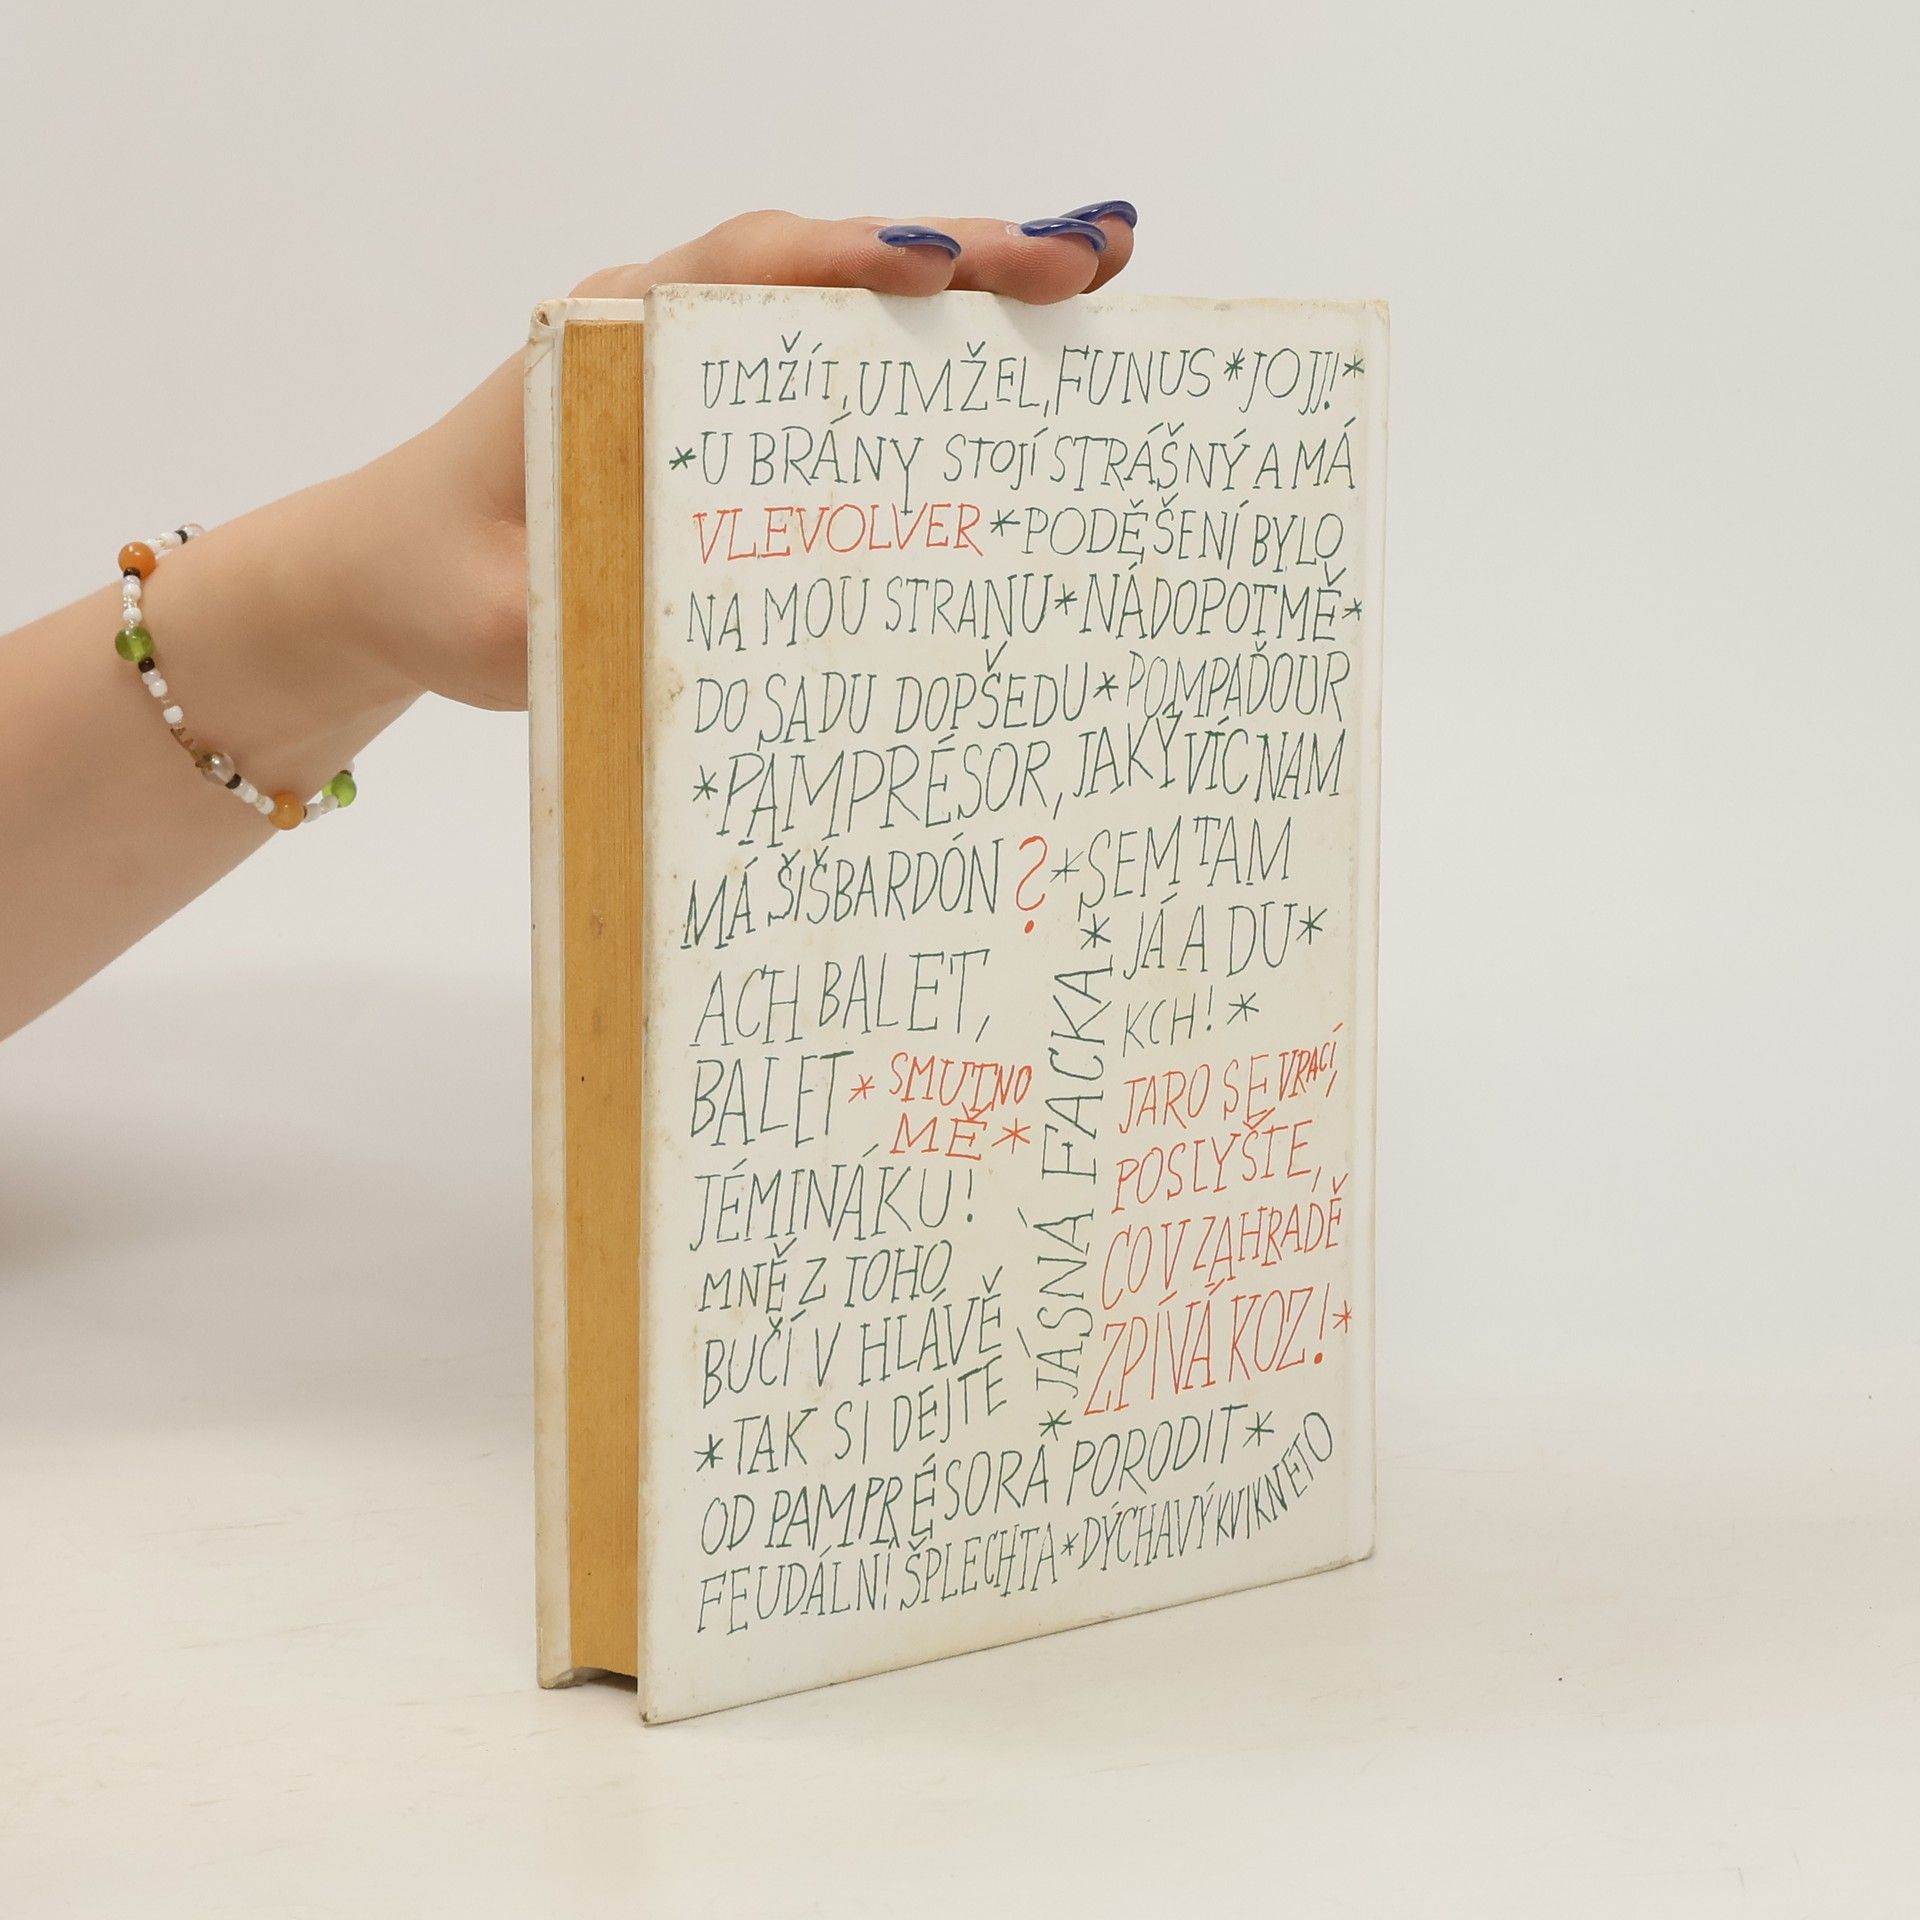 UMŽÍT, UMŽEL, FUNUS * JOJJ! *
* U BRÁNY STOJÍ STRÁŠNÝ A MÁ
VLEVOLVER * PODĚŠENÍ BYLO
NA MOU STRANU * NÁDOPOTMĚ *
DO SADU DOPŠEDU * POMPAĎOUR
* PAMPRÉSOR, JAKÝ VÍC NAM
MÁ ŠIŠBARDÓN? * SEM TAM
JÁ A DU *
KCH! *
ACH BALET,
BALET * SMUTNO
MĚ *
JÉMINÁKU!
MNĚ Z TOHO
BUČÍ V HLÁVĚ
* JÁSNÁ FACKA *
JARO SE VRACÍ,
POSLYŠTE,
CO V ZAHRADĚ
ZPÍVÁ KOZ! *
* TAK SI DEJTE
OD PAMPRÉSORA PORODIT *
FEUDÁLNÍ ŠPLECHTA * DÝCHAVÝ KVIKNETO